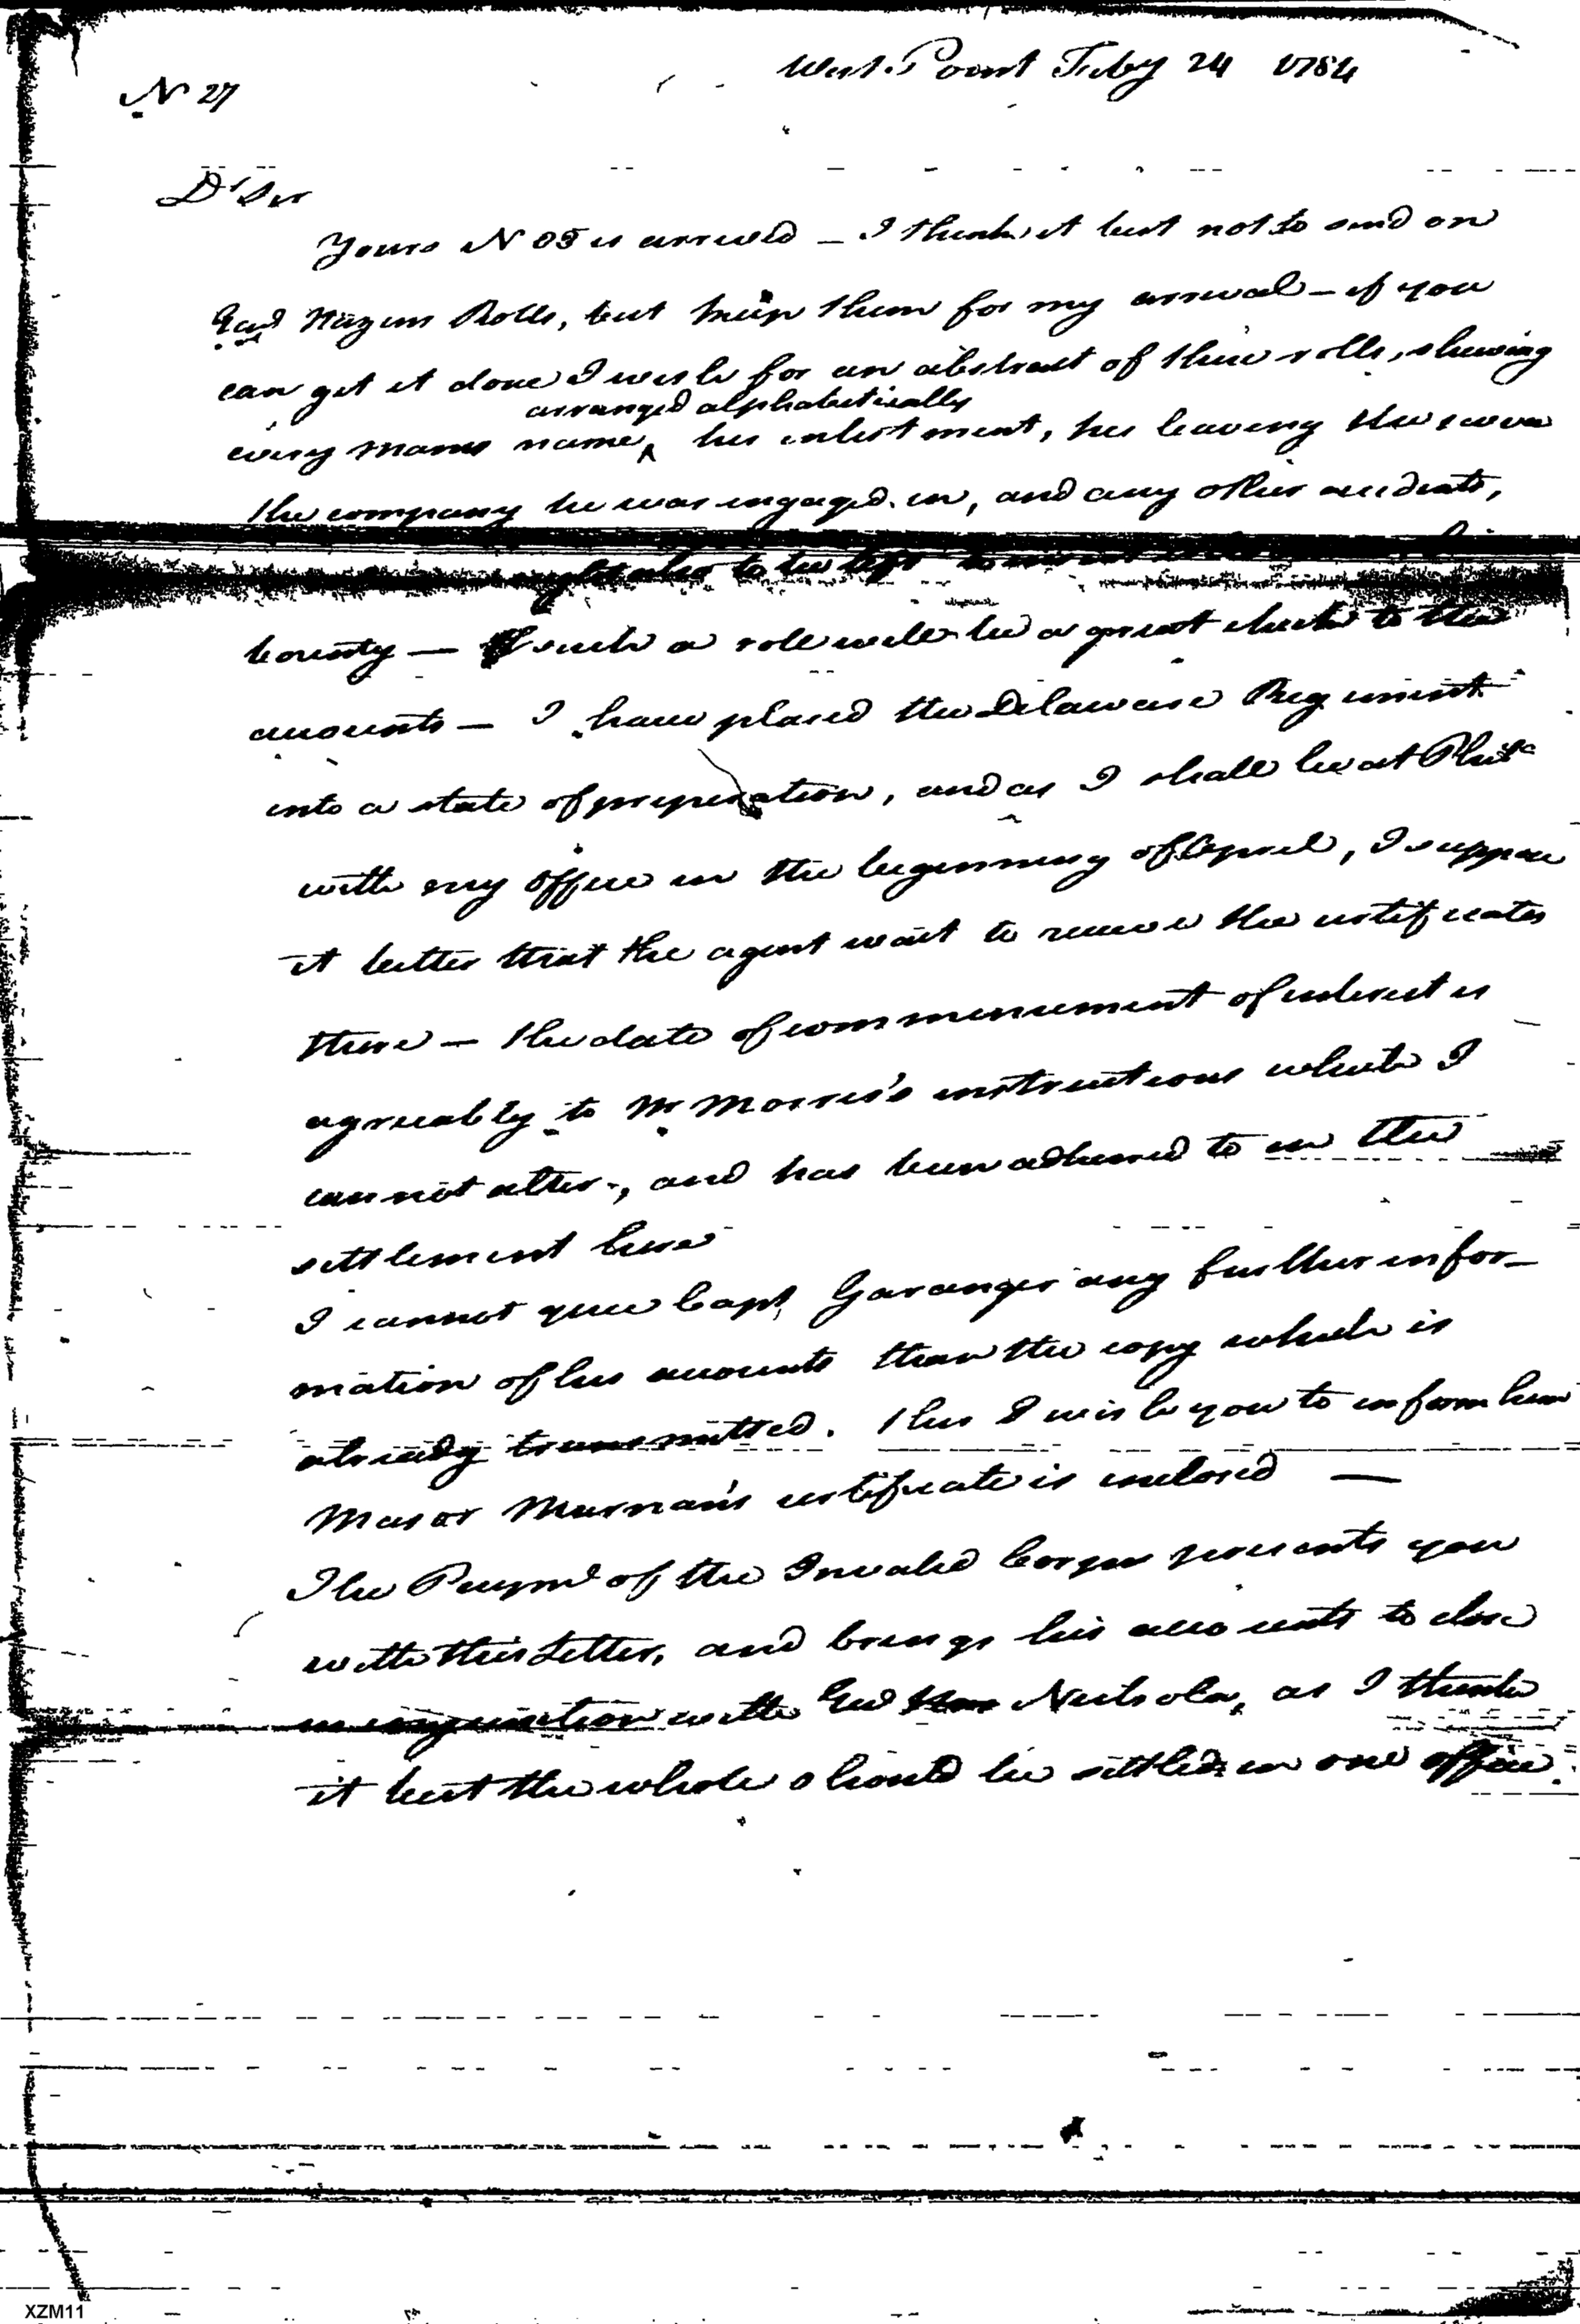 West Point Feby 24 1784
N 27
Dr Sir
Yours N 05 is arrived — I think it best not to send on
Genl Hazens Rolls, but keep them for my arrival — if you
can get it done I wish for an abstract of these rolls, shewing
arranged alphabetically
every mans name, his inlistment, his leaving the service
the company he was engaged in, and any other accidents,
ought also to be left to
bounty — such a roll will be a great check to the
accounts — I have placed the Delaware Regiment
into a state of preperation, and as I shall be at Phila
with my office in the beginning of April, I suppose
it better that the agent wait to receive the certificates
there — the date of commencement of interest is
agreeably to Mr Morris's instructions which I
cannot alter, and has been adhered to in the
settlement here
I cannot give Capt Garanger any further infor-
mation of his accounts than the copy which is
already transmitted. this I wish you to inform him
Major Murnan's certificate is inclosed —
The Paymr of the Invalid Corps presents you
with this Letter, and brings his accounts to close
in conjunction with Genl Nichola, as I think
it best the whole should be settled in one office.
XZM11